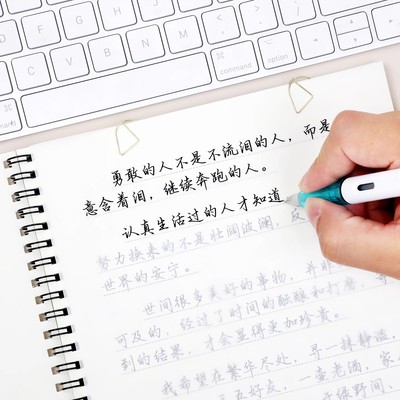 Z X C V B N M
command option
勇敢的人不是不流泪的人，而是
愿含着泪，继续奔跑的人。
认真生活过的人才知道
努力换来的不是壮阔波澜，
世界的安宁。
世间很多美好的事物，并非
可及的，经过了时间的酝酿和打磨，
到的结果，才会显得更加珍贵。
我希望在繁华尽处，寻一拌静谧，
三五好友，一壶老酒，家